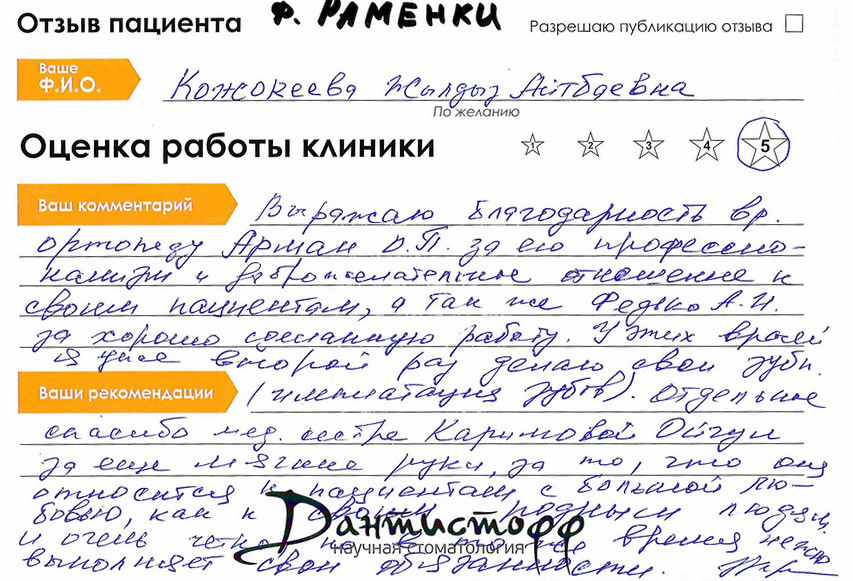 Отзыв пациента Ф. РАМЕНКИ Разрешаю публикацию отзыва
Ваше Ф.И.О. Кожокеева Жылдыз Айтбаевна
По желанию
Оценка работы клиники 1 2 3 4 5
Ваш комментарий Выражаю благодарность вр.
ортопеду Арман О.П. за его профессио-
нализм и доброжелательное отношение к
своим пациентам, а так же Федько А.И.
за хорошо сделанную работу. У этих врачей
я уже второй раз делаю свои зубы.
Ваши рекомендации (имплатация зубов). Отдельное
спасибо мед. сестре Каримовой Ойгул
за еще мягкие руки, за то, что она
относится к пациентам с большой лю-
бовью, как к своим родным людям.
и очень четко в время нежно
выполняет свои обязанности.
Дантистофф
научная стоматология